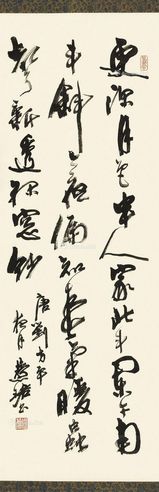 更深月色半人家北斗闌干南
斗斜今夜偏知春氣暖蟲
聲新透綠窗紗
唐劉方平